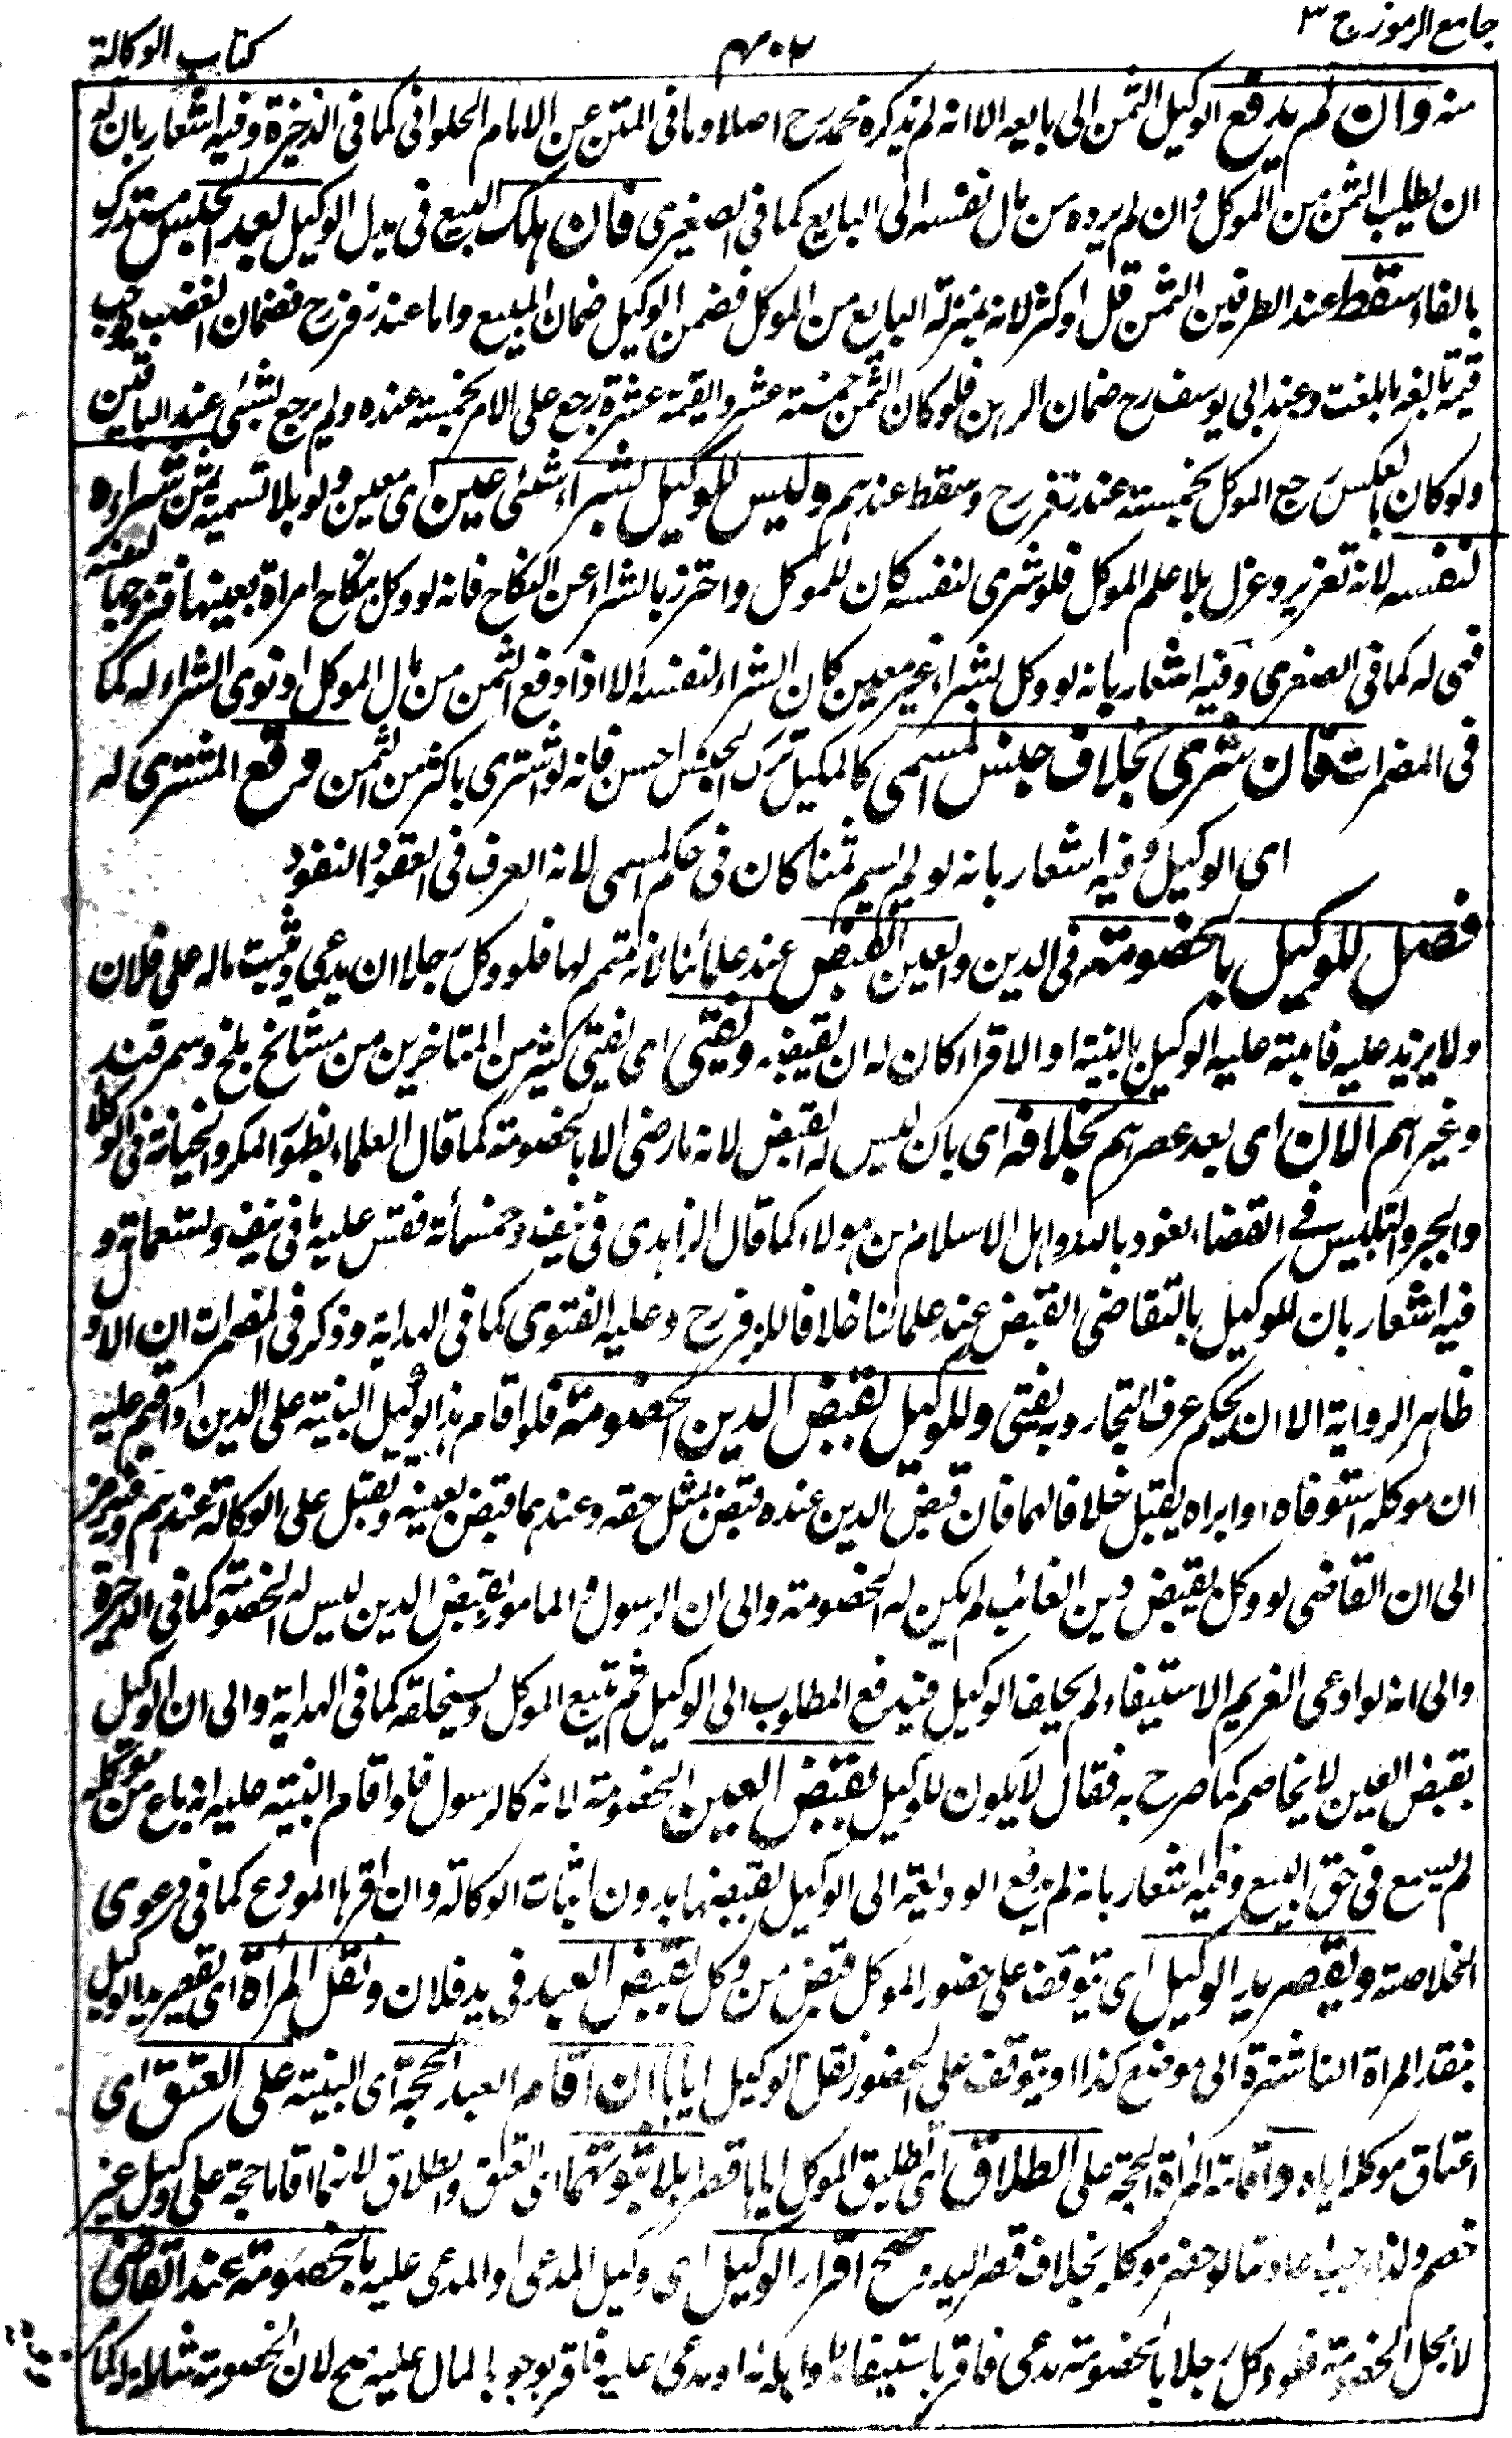 جامع الرموز ج ٣
٤٠٢
كتاب الوكالة
منه وان لم يدفع الوكيل الثمن الى بايعه الا انه لم يذكره محمد رح اصلا وما فى المتن عن الامام الحلوانى كما فى الذخيرة وفيه اشعار بان له
ان يطلب الثمن من الموكل وان لم يرده من مال نفسه الى البايع كما فى الصغيرى فان هلك المبيع فى يد الوكيل بعد الحبس مستدرك
بالفاء سقط عند الطرفين الثمن قل او كثر لانه بمنزلة البايع من الموكل فضمن الوكيل ضمان المبيع واما عند زفر رح فضمان الغصب فيجب
قيمته بالغة ما بلغت وعند ابى يوسف رح ضمان الرهن فلو كان الثمن خمسة عشر والقيمة عشرة رجع على الآمر بخمسة عنده ولم يرجع بشئ عند الباقين
ولو كان بالعكس رجع الموكل بخمسة عند زفر رح وسقط عندهم وليس للوكيل بشراء شئ عين اى معين ولو بلا تسمية ثمن شراءه
لنفسه لانه تغرير وعزل بلا علم الموكل فلو شرى لنفسه كان للموكل واحترز بالشراء عن النكاح فانه لو وكل بنكاح امراة بعينها فتزوجها لنفسه
فهى له كما فى الصغرى وفيه اشعار بانه لو وكل بشراء غير معين كان الشراء لنفسه الا اذا دفع الثمن من مال الموكل او نوى الشراء له كما
فى المضمرات فان شرى بخلاف جنس المسمى كالمكيل ترك الجنس احسن فانه لو اشترى باكثر من الثمن وقع المشترى له
اى الوكيل وفيه اشعار بانه لو لم يسم ثمنا كان فى حكم المسمى لانه العرف فى العقود النقود
فصل للوكيل بالخصومة فى الدين والعين القبض عند علمائنا لانه متمم لها فلو وكل رجلا ان يدعى ويثبت ماله على فلان
ولا يزيد عليه فاثبته عليه الوكيل بالبينة او الاقرار كان له ان يقبضه ويفتى اى يفتى كثير من المتاخرين من مشائخ بلخ وسمرقند
وغيرهم الآن اى بعد عصرهم بخلافه اى بان ليس له القبض لانه ما رضى الا بالخصومة كما قال العلماء بظهور المكر والخيانة فى الوكلاء
والحجر والتلبيس فى القضاء نعوذ بالله واهل الاسلام من هؤلاء كما قال الزاهدى فى نيف وخمسمائة فقس عليه ما فى نيف وتسعمائة و
فيه اشعار بان للوكيل بالتقاضى القبض عند علمائنا خلافا لزفر رح وعليه الفتوى كما فى الهداية وذكر فى المضمرات ان الاول
ظاهر الرواية الا ان يحكم عرف التجار وبه يفتى وللوكيل بقبض الدين الخصومة فلو اقام هذا الوكيل البينة على الدين او اقيم عليه
ان موكله استوفاه او ابراه يقبل خلافا لهما فان قبض الدين عنده قبض بمثل حقه وعندهما قبض بعينه وتقبل على الوكالة عندهم وفيه رمز
الى ان القاضى لو وكل بقبض دين الغائب لم يكن له الخصومة والى ان الرسول والمامور بقبض الدين ليس له الخصومة كما فى الذخيرة
والى انه لو ادعى الغريم الاستيفاء لم يحلف الوكيل فيدفع المطلوب الى الوكيل ثم يتبع الموكل ويستحلفه كما فى الهداية والى ان الوكيل
بقبض العين لا يخاصم كما صرح به فقال لا يكون للوكيل بقبض العين الخصومة لانه كالرسول فلو اقام البينة عليه انه باع من موكله
لم يسمع فى حق البيع وفيه اشعار بانه لم يدفع الوديعة الى الوكيل بقبضها بدون اثبات الوكالة وان اقر بها المودع كما فى دعوى
الخلاصة ويقصر يد الوكيل اى يتوقف على حضور الموكل قبض من وكل بقبض العبد فى يد فلان ونقل المرأة اى يقصر يد الوكيل
بنقل المراة الناشزة الى موضع كذا او يتوقف على الحضور نقل الوكيل اياها ان اقام العبد الحجة اى البينة على العتق اى
اعتاق موكله اياه واقامة المرأة الحجة على الطلاق اى تطليق الموكل اياها قصرا بلا ثبوتهما اى العتق والطلاق لانهما اقاما حجة على وكيل غير
خصم ولذا يجب اعادتها لو حضر موكله بخلاف قصر اليد وصح اقرار الوكيل اى وكيل المدعى او المدعى عليه بالخصومة عند القاضى
لاجل الخصومة فلو وكل رجلا بالخصومة مدعى فاقر باستيفائه او ابرائه او مدعى عليه فاقر بوجوب المال عليه صح لان الخصومة شاملة له كما